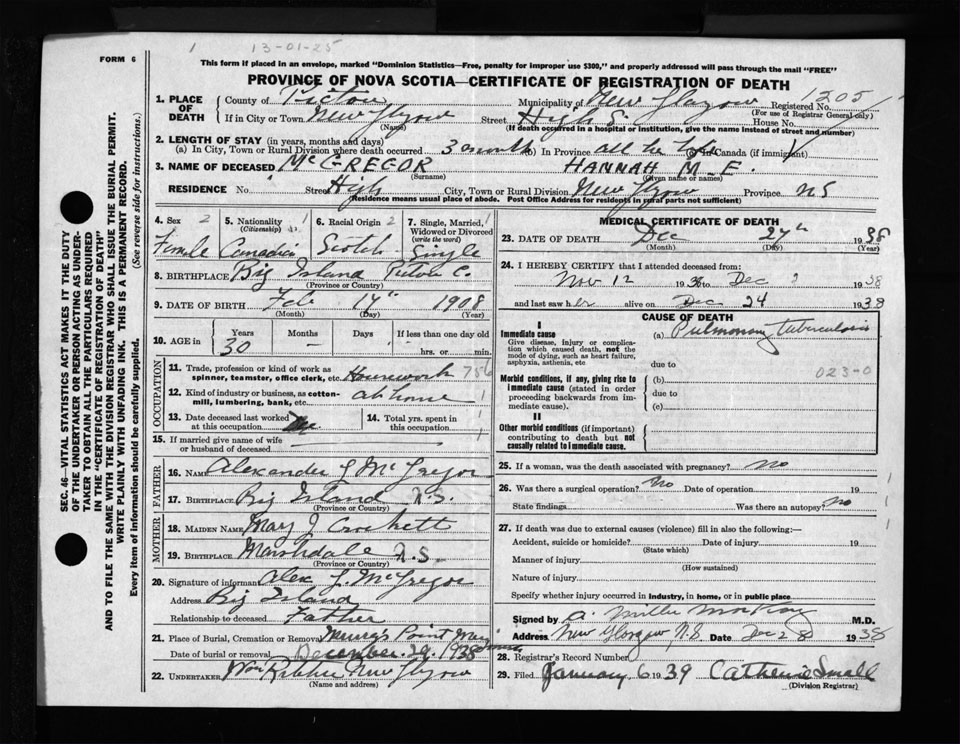 1 13-01-25
FORM 6
This form if placed in an envelope, marked "Dominion Statistics—Free, penalty for improper use $300," and properly addressed will pass through the mail "FREE"
PROVINCE OF NOVA SCOTIA—CERTIFICATE OF REGISTRATION OF DEATH
SEC. 46—VITAL STATISTICS ACT MAKES IT THE DUTY
OF THE UNDERTAKER OR PERSON ACTING AS UNDER-
TAKER TO OBTAIN ALL THE PARTICULARS REQUIRED
IN THE "CERTIFICATE OF REGISTRATION OF DEATH"
AND TO FILE THE SAME WITH THE DIVISION REGISTRAR WHO SHALL ISSUE THE BURIAL PERMIT.
WRITE PLAINLY WITH UNFADING INK. THIS IS A PERMANENT RECORD.
Every item of information should be carefully supplied. (See reverse side for instructions.)
1. PLACE OF DEATH County of Pictou Municipality of New Glasgow Registered No. 1205
(For use of Registrar General only)
If in City or Town New Glasgow Street High St. House No.
(Name) (If death occurred in a hospital or institution, give the name instead of street and number)
2. LENGTH OF STAY (in years, months and days)
(a) In City, Town or Rural Division where death occurred 3 months (b) In Province all her life (c) In Canada (if immigrant)
3. NAME OF DECEASED McGREGOR HANNAH M E.
(Surname) (Given name or names)
RESIDENCE No. Street High City, Town or Rural Division New Glasgow Province N S
(Residence means usual place of abode. Post Office Address for residents in rural parts not sufficient)
4. Sex 2 Female
5. Nationality (Citizenship) 1 Canadian
6. Racial Origin 2 Scotch
7. Single, Married, Widowed or Divorced (write the word) 1 Single
8. BIRTHPLACE Big Island Pictou C.
(Province or Country)
9. DATE OF BIRTH Feb 14th 1908
(Month) (Day) (Year)
10. AGE in Years 30 Months – Days – If less than one day old hrs. or min.
OCCUPATION
11. Trade, profession or kind of work as spinner, teamster, office clerk, etc. Housework 756
12. Kind of industry or business, as cotton-mill, lumbering, bank, etc. at home 1
13. Date deceased last worked at this occupation
14. Total yrs. spent in this occupation 1
15. If married give name of wife or husband of deceased
FATHER
16. NAME Alexander J McGregor
17. BIRTHPLACE Big Island N.S.
(Province or Country)
MOTHER
18. MAIDEN NAME Mary J Crockett
19. BIRTHPLACE Marshdale N.S.
(Province or Country)
20. Signature of informant Alex J. McGregor
Address Big Island
Relationship to deceased Father
21. Place of Burial, Cremation or Removal Point
Date of burial or removal December 29, 1938
22. UNDERTAKER New Glasgow
(Name and address)
MEDICAL CERTIFICATE OF DEATH
23. DATE OF DEATH Dec 27th 1938
(Month) (Day)
24. I HEREBY CERTIFY that I attended deceased from:
Nov 12 1938 to Dec 1938
and last saw her alive on Dec 24 1938
CAUSE OF DEATH
I
Immediate cause
Give disease, injury or complication which caused death, not the mode of dying, such as heart failure, asphyxia, asthenia, etc
(a) Pulmonary tuberculosis
due to
023-0
Morbid conditions, if any, giving rise to immediate cause (stated in order proceeding backwards from immediate cause).
(b)
due to
(c)
II
Other morbid conditions (if important) contributing to death but not causally related to immediate cause.
25. If a woman, was the death associated with pregnancy? no
26. Was there a surgical operation? No Date of operation 19 1
State findings Was there an autopsy? no 1
27. If death was due to external causes (violence) fill in also the following:— 1
Accident, suicide or homicide? Date of injury 19
(State which)
Manner of injury
(How sustained)
Nature of injury
Specify whether injury occurred in industry, in home, or in public place
Signed by M.D.
Address New Glasgow N.S. Date Dec 28 1938
28. Registrar's Record Number
29. Filed January 6 1939 Catherine Small
(Division Registrar)